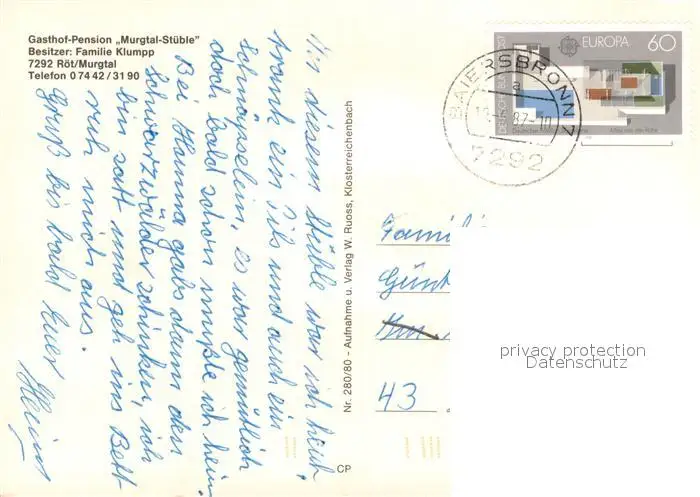 Gasthof-Pension „Murgtal-Stüble"
Besitzer: Familie Klumpp
7292 Röt/Murgtal
Telefon 0 74 42 / 31 90
In diesem Stüble war ich heut,
trank ein Pils und auch ein
Schnäpselein, es war gemütlich
doch bald schon mußte ich heim.
Bei Hanna gabs dann den
Schwarzwälder Schinken, ich
bin satt und geh ins Bett
ruh mich aus.
Gruß bis bald Euer
Heinz
Nr. 280/80 - Aufnahme u. Verlag W. Ruoss, Klosterreichenbach
CP
DEUTSCHE BUNDESPOST
EUROPA
60
BAIERSBRONN 7
a
87-10
7292
Famili
Günt
43
privacy protection
Datenschutz